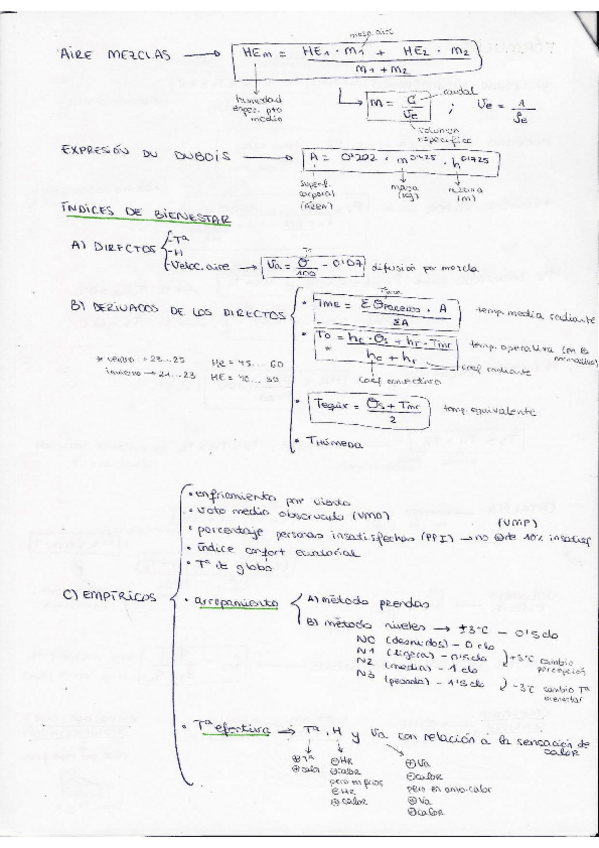 masa aire
AIRE MEZCLAS → HEm = HE1 · m1 + HE2 · m2 / m1 + m2
humedad espec. pto medio
m = C / Ve ; Ve = 1 / ρe
caudal
volumen específico
EXPRESIÓN DU DUBOIS → A = 0'202 · m^0'425 · h^0'725
superf. corporal
masa (kg)
altura (m)
ÍNDICES DE BIENESTAR
A) DIRECTOS
- Tª
- H
- Veloc. aire → Va = / 100 - 0'07 difusión por mezcla
B) DERIVADOS DE LOS DIRECTOS
• TMR = Σ θparedes · A / ΣA temp. media radiante
• To = hc · θs + hr · Tmr / hc + hr temp. operativa (en la normativa)
coef. radiante
coef convectivo
* verano → 23...25 HR = 45...60
invierno → 21...23 HR = 40...50
• Tequiv = θs + Tmr / 2 temp. equivalente
• Thúmeda
C) EMPÍRICOS
• enfriamiento por viento
• voto medio observado (VMO) (VMP)
• porcentaje personas insatisfechas (PPI) → no 10% insatisf
• índice confort ecuatorial
• Tª de globo
• arropamiento
A) método prendas
B) método niveles → ±3ºC — 0'5 clo
N0 (desnudos) - 0 clo
N1 (ligera) - 0'5 clo
N2 (media) - 1 clo
N3 (pesada) - 1'5 clo
+3ºC cambio percepción
-3ºC cambio Tª bienestar
• Tª efectiva → Tª, H y Va con relación a la sensación de calor
⊕ Tª
⊕ calor
⊖ HR
⊖ calor
pero en frios
⊖ HR
⊕ calor
⊕ Va
⊖ calor
pero en
⊕ Va
⊕ calor